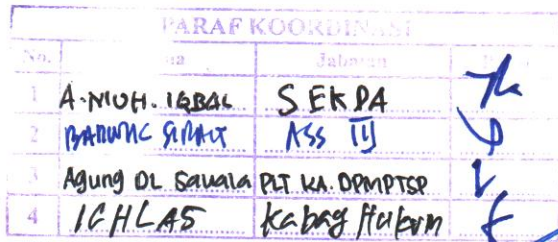 PARAF KOORDINASI
No. Jabatan
1 A. MUH. IQBAL SEKDA
2 ASS III
3 Agung DL. Sawala PLT KA. DPMPTSP
4 ICHLAS Kabag Hukum